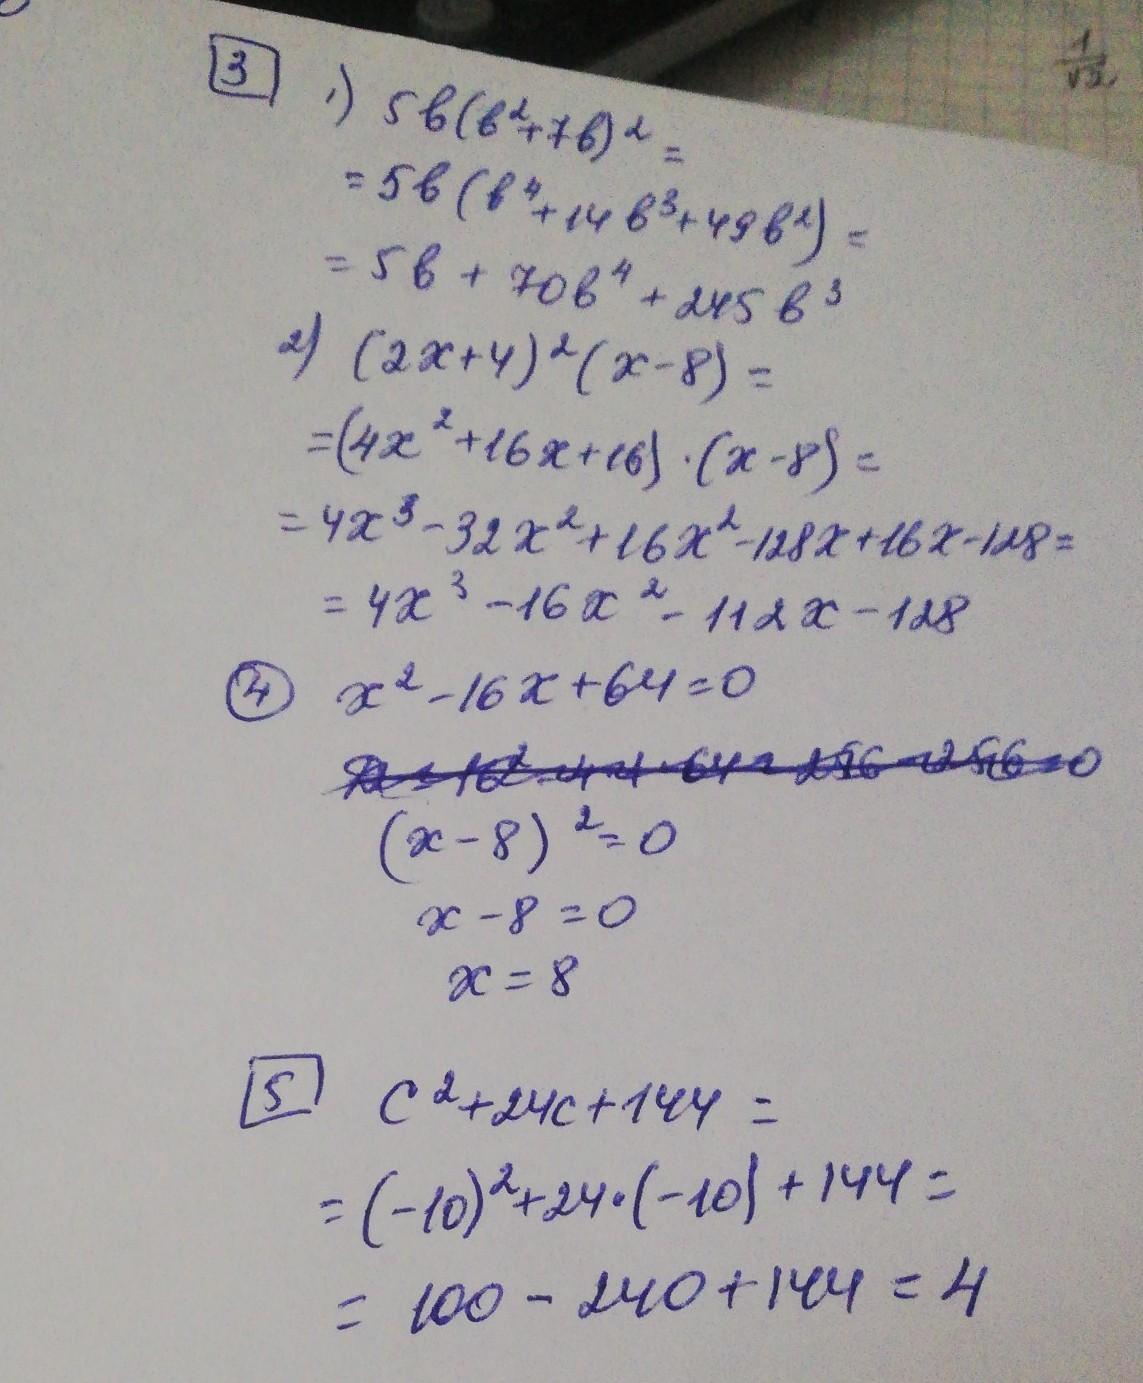 1/√2
3 1) 5b(b²+7b)² =
= 5b(b⁴+14b³+49b²) =
= 5b + 70b⁴ + 245b³
2) (2x+4)²(x-8) =
=(4x²+16x+16)·(x-8) =
= 4x³-32x²+16x²-128x+16x-128 =
= 4x³-16x²-112x-128
4 x²-16x+64=0
D = 16²-4·1·64 = 256-256=0
(x-8)²=0
x-8=0
x=8
5 c²+24c+144 =
= (-10)²+24·(-10)+144 =
= 100-240+144=4